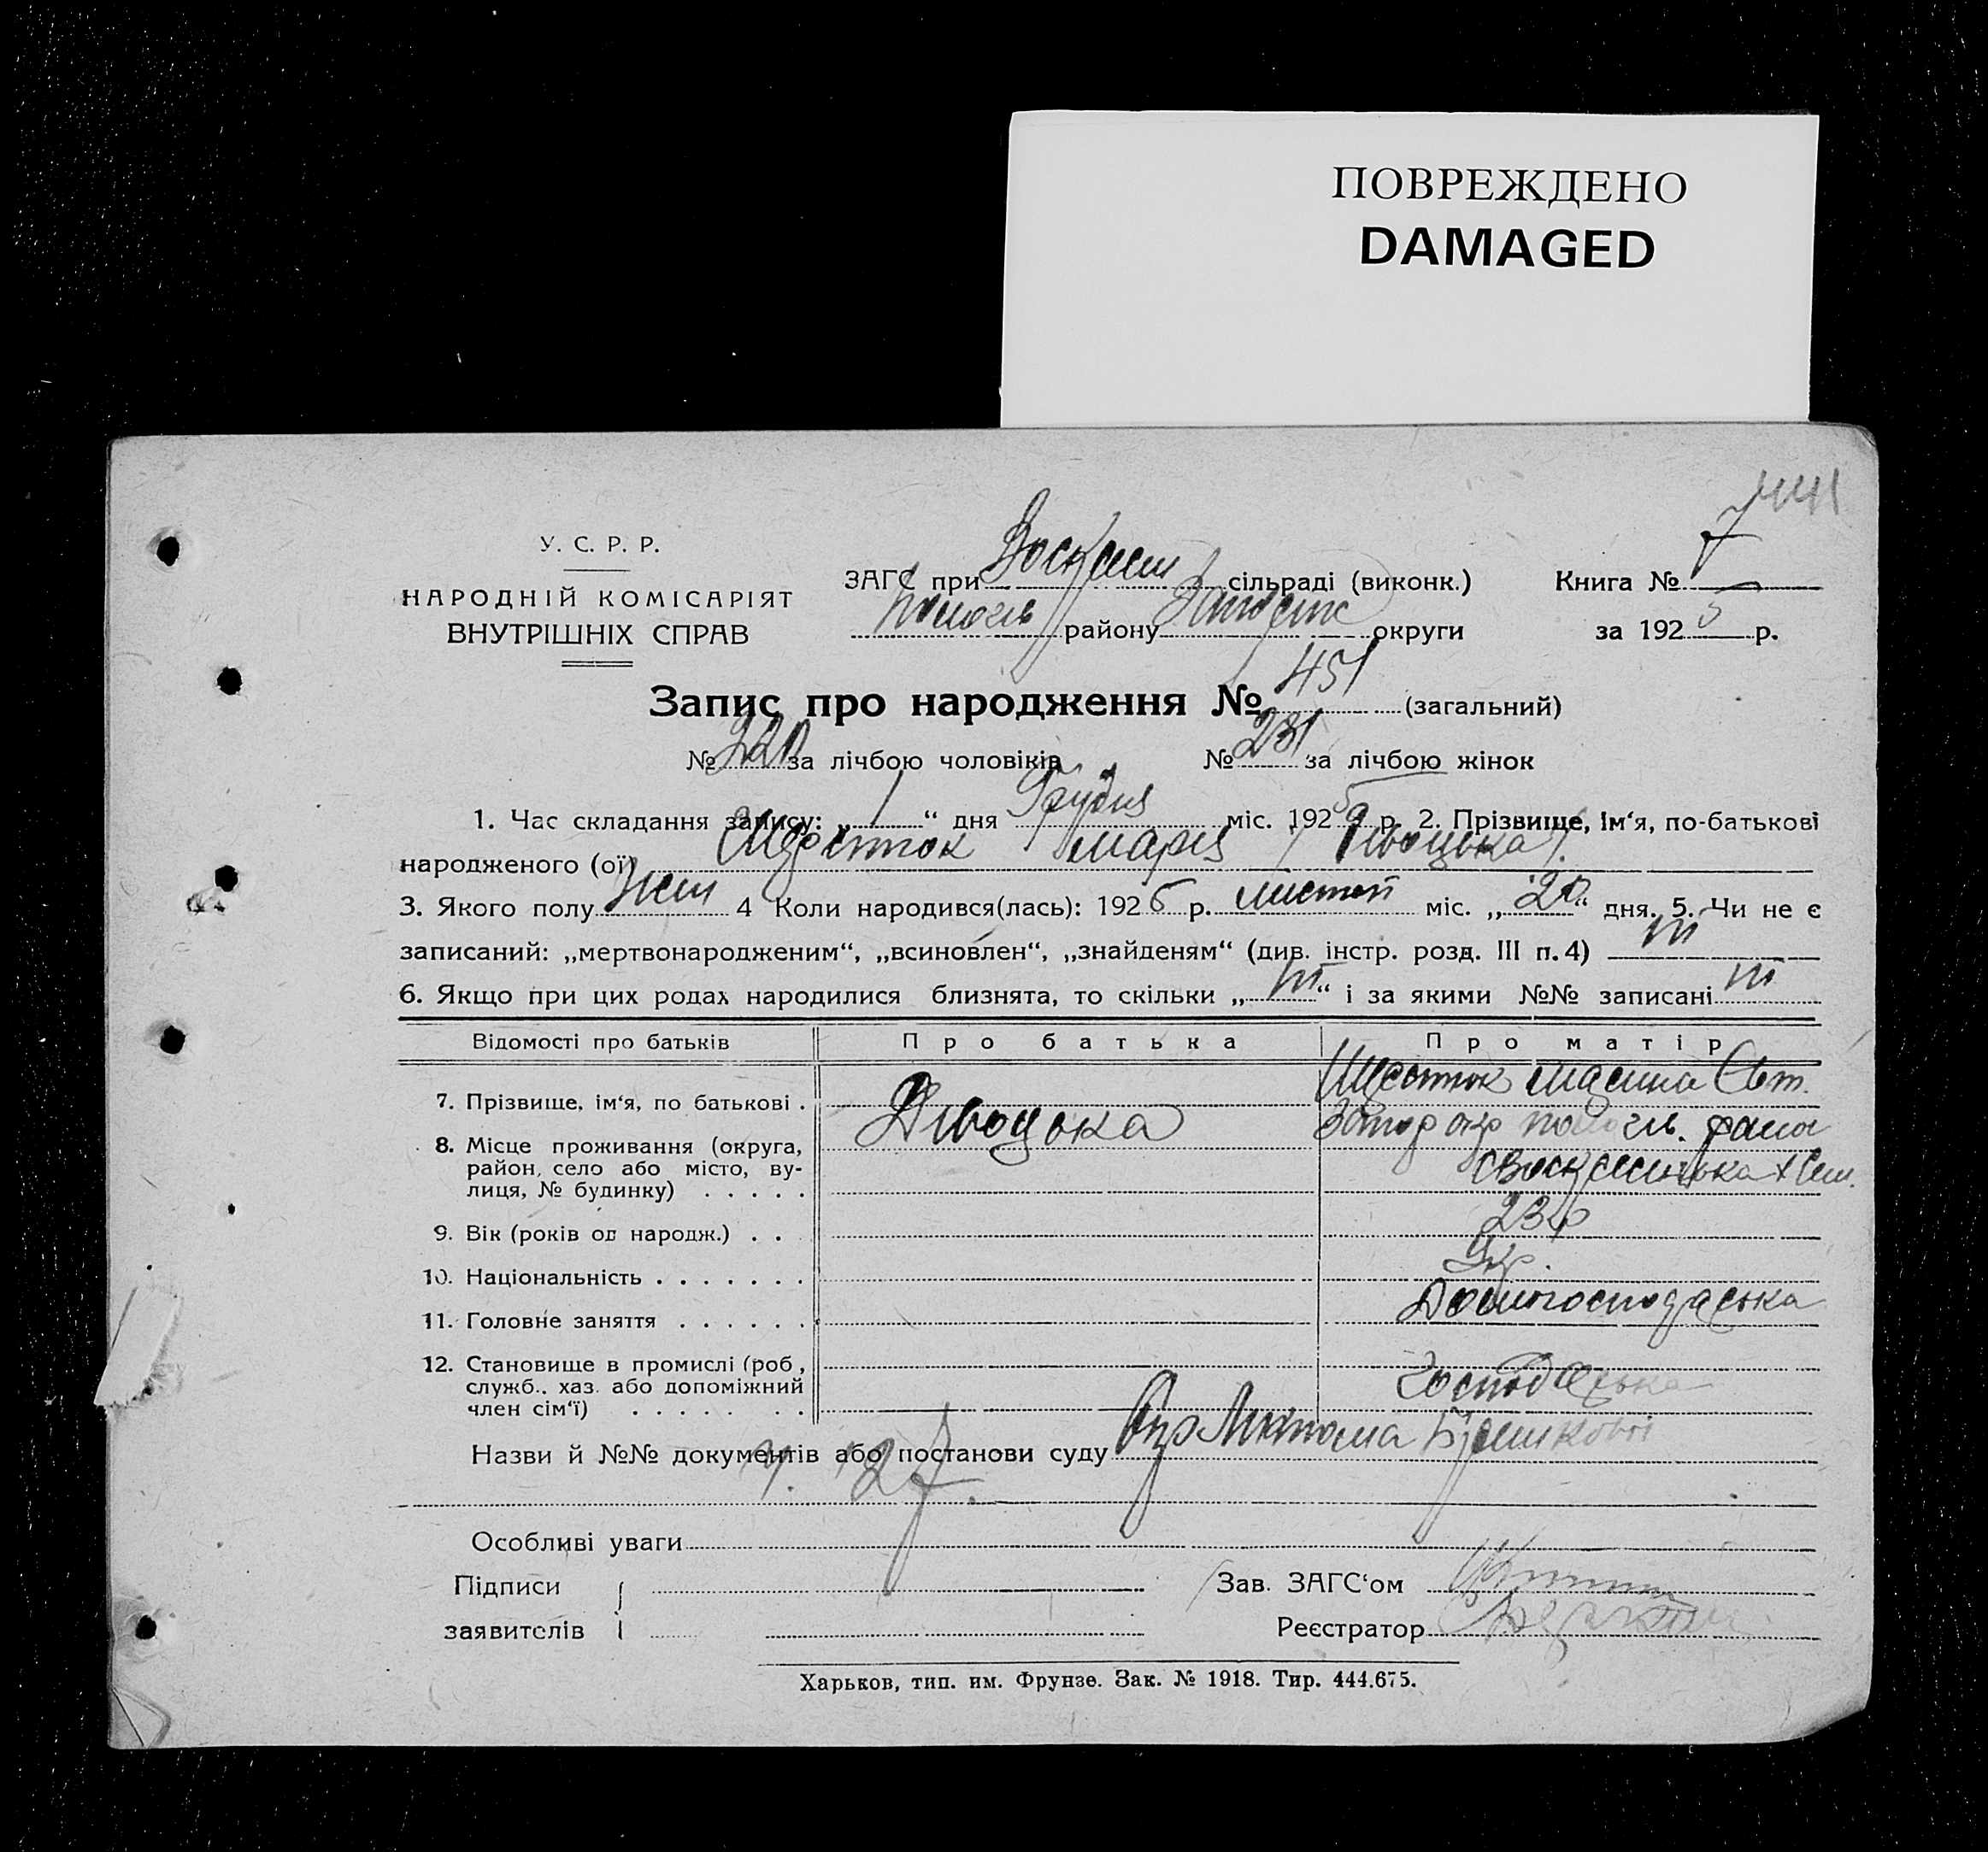 ПОВРЕЖДЕНО
DAMAGED
441
У. С. Р. Р.
НАРОДНІЙ КОМІСАРІЯТ
ВНУТРІШНІХ СПРАВ
ЗАГС при Воскресен сільраді (виконк.)
Пологів району Запоріж округи
Книга № 7
за 1925 р.
Запис про народження № 451 (загальний)
№ 220 за лічбою чоловіків № 231 за лічбою жінок
1. Час складання запису: „ 1 “ дня Грудня міс. 1925 р. 2. Прізвище, ім‘я, по-батькові
народженого (ої) Марія /Дівоцька/.
3. Якого полу жен 4 Коли народився(лась): 1925 р. листоп міс. „ 20 “ дня. 5. Чи не є
записаний: „мертвонародженим“, „всиновлен“, „знайденям“ (див. інстр. розд. III п. 4) ні
6. Якщо при цих родах народилися близнята, то скільки „ ні “ і за якими №№ записані ні
Відомості про батьків
Про батька
Про матір
7. Прізвище, ім‘я, по батькові .
Дівоцька
8. Місце проживання (округа, район, село або місто, вулиця, № будинку) . . . . .
Запор окр Пологів. району
9. Вік (років од народж.) . . .
23 р
10. Національність . . . . . . .
Укр.
11. Головне заняття . . . . . .
Домогосподарська
12. Становище в промислі (роб., служб., хаз. або допоміжний член сім‘ї) . . . . . . .
Господарська
Назви й №№ документів або постанови суду
Особливі уваги
Підписи
заявителів
Зав. ЗАГС‘ом
Реєстратор
Харьков, тип. им. Фрунзе. Зак. № 1918. Тир. 444.675.